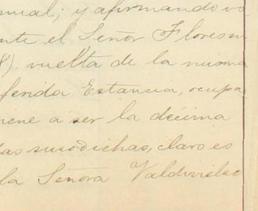 y afirmando
el Señor Flores
vuelta de la misma
Estancia, ocupa
a ser la décima
susodichas, claro es
la Señora Valdivielso